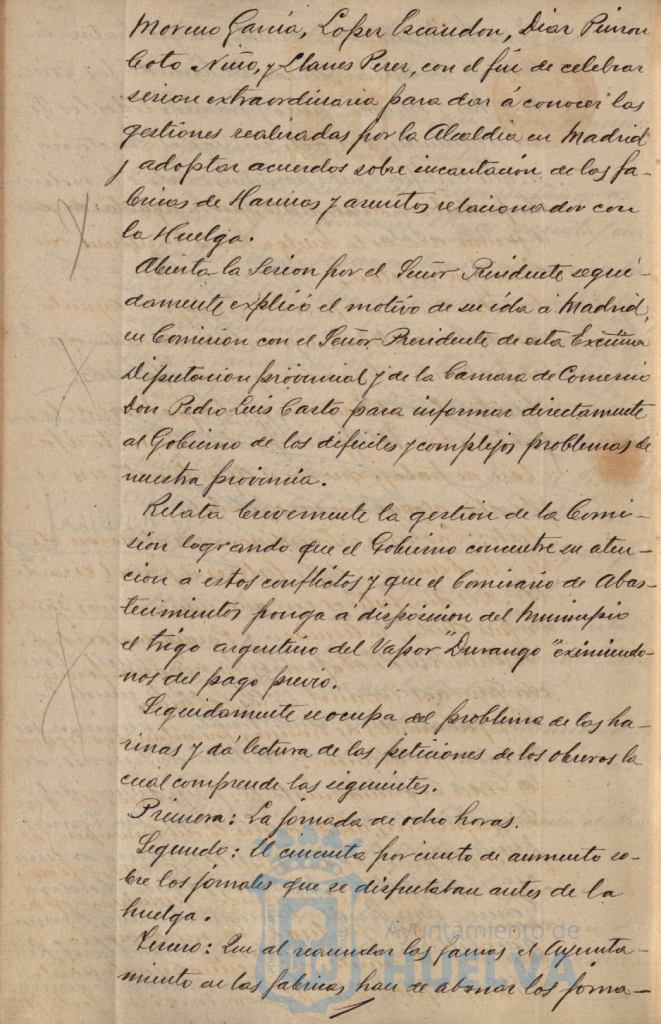 Moreno Garcia, Lopez Escaudon, Diaz Pinzon
Coto Niño, y Llanes Perez, con el fin de celebrar
sesion extraordinaria para dar á conocer las
gestiones realizadas por la Alcaldia en Madrid
y adoptar acuerdos sobre incautación de las fa-
bricas de Harinas y asuntos relacionados con
la Huelga.
Abierta la Sesion por el Señor Presidente segui-
damente explicó el motivo de su ida á Madrid,
en Comision con el Señor Presidente de esta Excma
Diputacion provincial y de la Camara de Comercio
Don Pedro Luis Casto para informar directamente
al Gobierno de los dificiles y complejos problemas de
nuestra provincia.
Relata brevemente la gestión de la Comi-
sion logrando que el Gobierno concentre su aten-
cion á estos conflictos y que el Comisario de Abas-
tecimientos ponga á disposicion del Municipio
el trigo argentino del Vapor "Durango" eximiendo-
nos del pago previo.
Seguidamente se ocupa del problema de las ha-
rinas y dá lectura de las peticiones de los obreros la
cual comprende las siguientes.
Primera: La jornada de ocho horas.
Segundo: El cincuenta por ciento de aumento so-
bre los jornales que se disfrutaban antes de la
huelga.
Tercero: Que al reanudar las faenas el Ayunta-
miento en las fabricas, han de abonar los jorna-
Ayuntamiento de
HUELVA